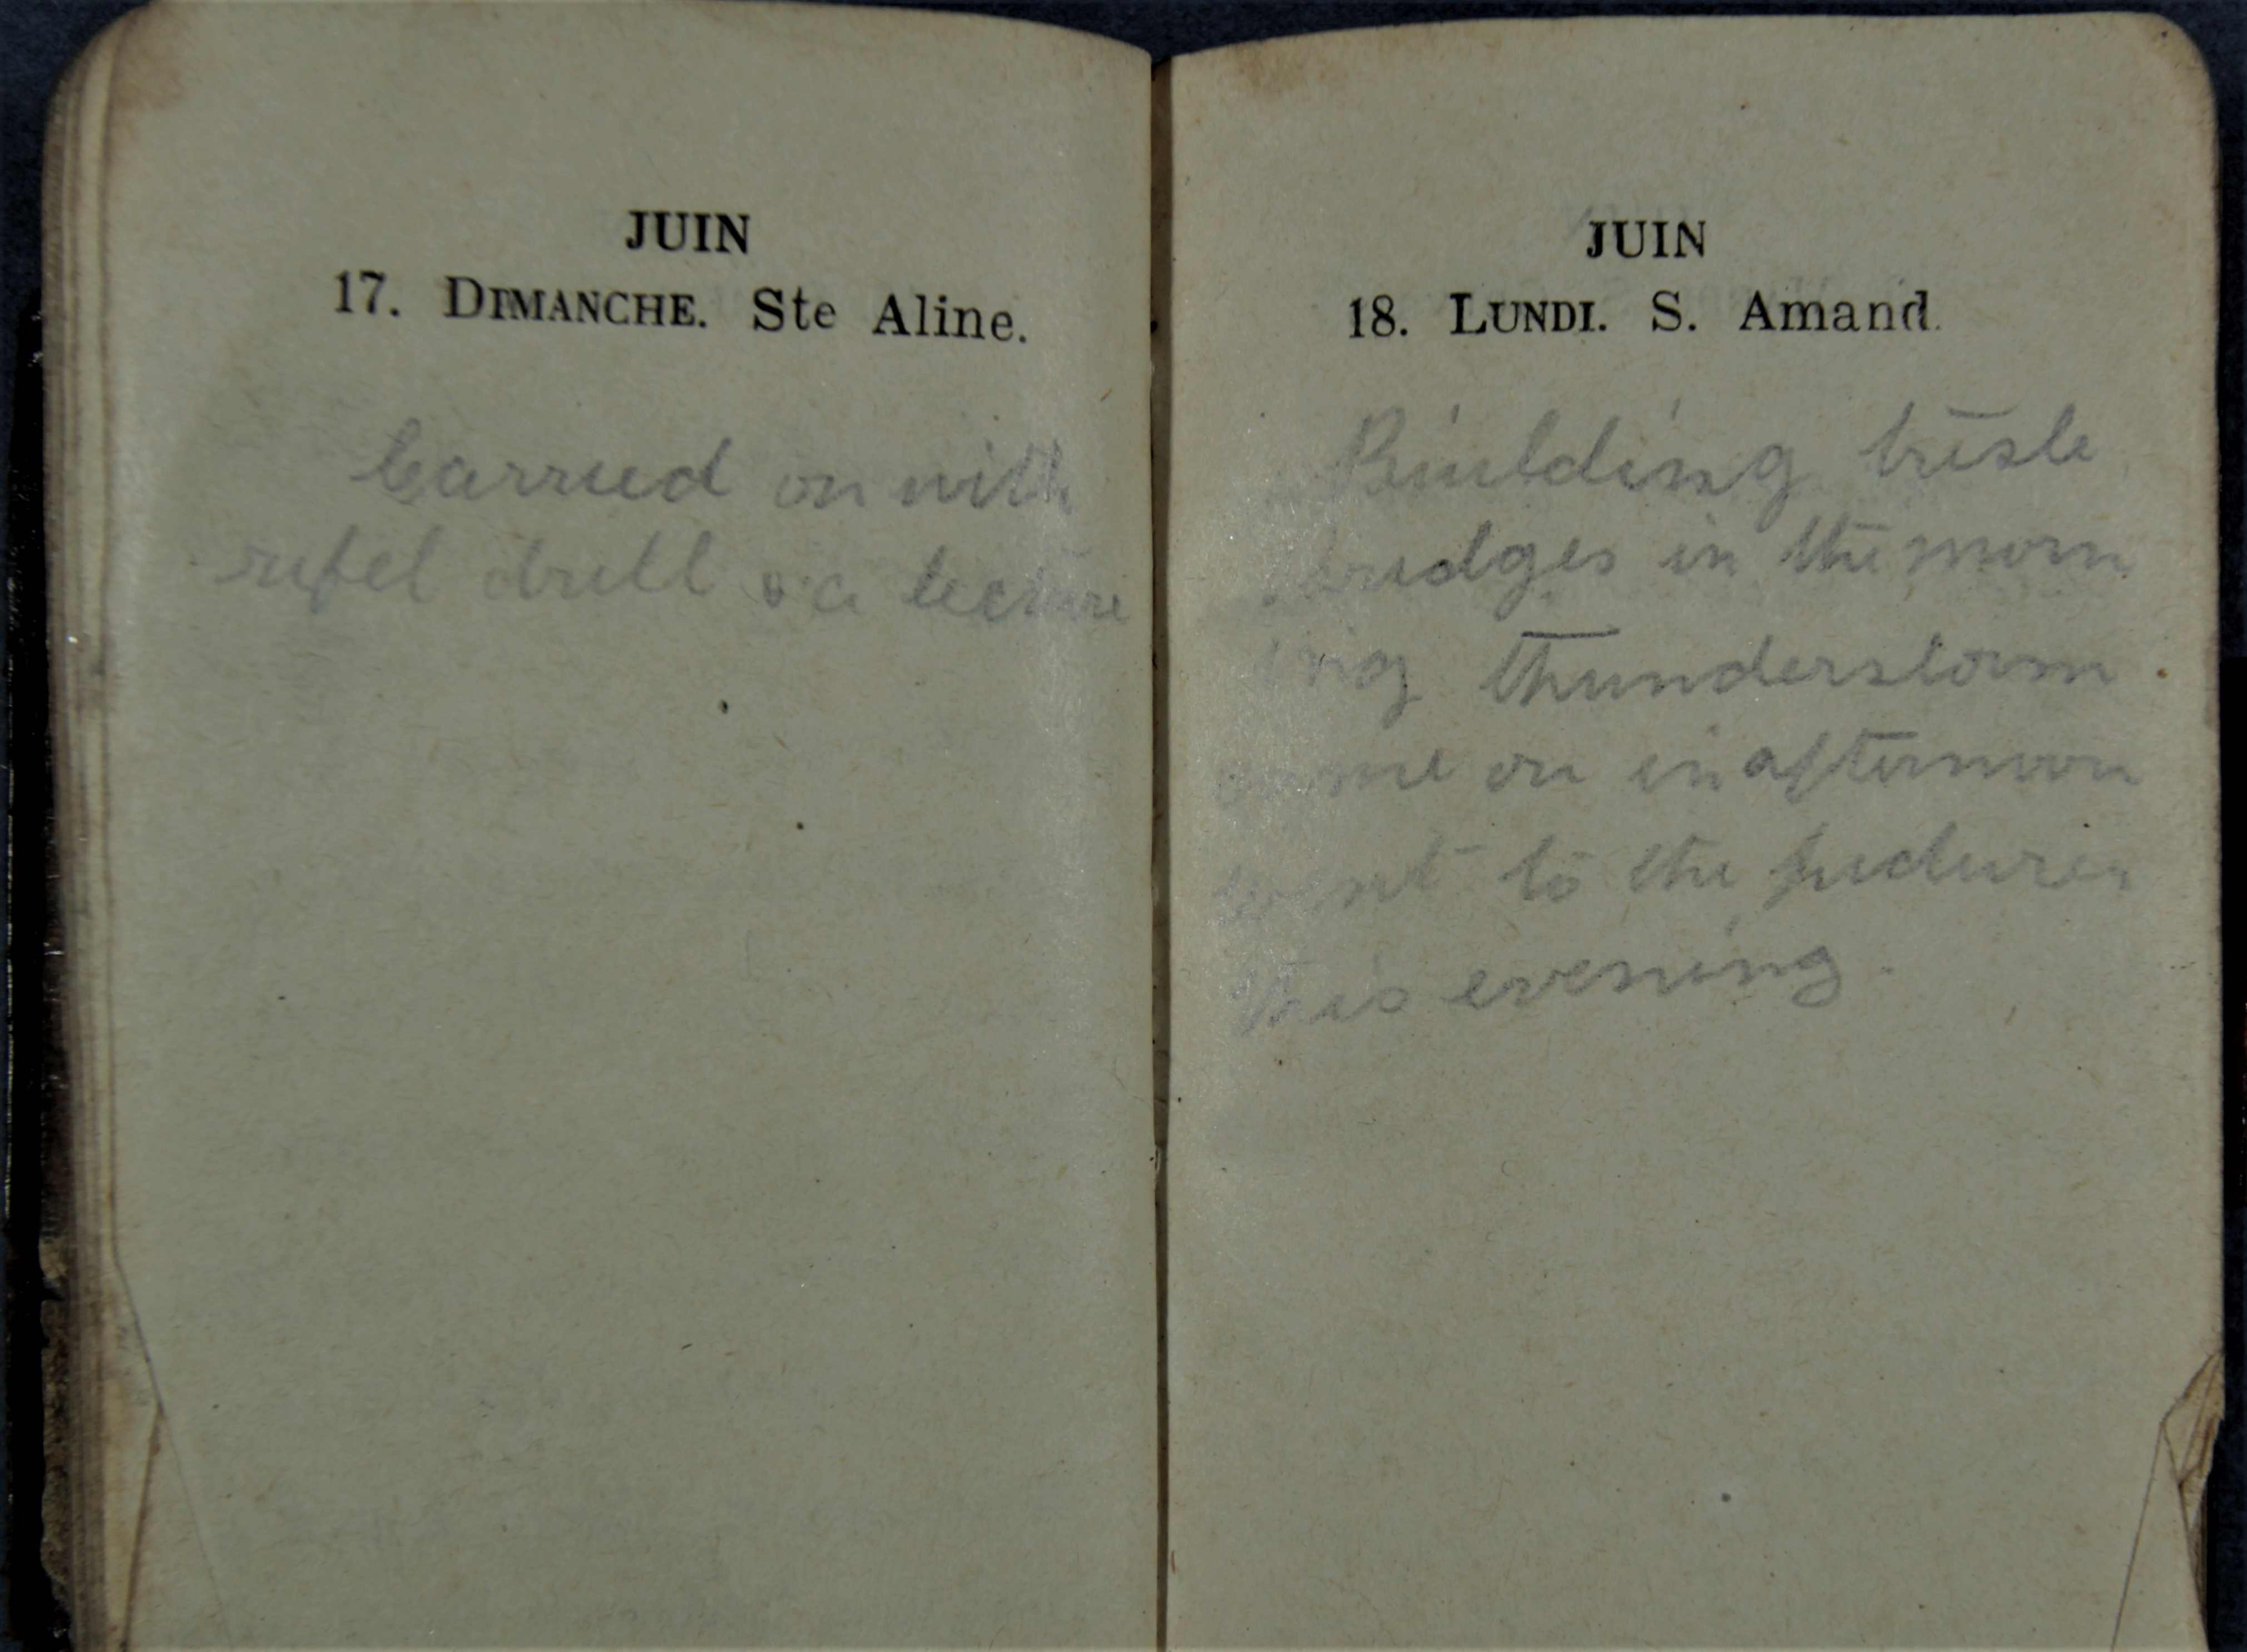 JUIN
17. DIMANCHE. Ste Aline.
Carried on with
rifel drill & a lecture
JUIN
18. LUNDI. S. Amand.
Building tristle
bridges in the morn
ing thunderstorm
came on in afternoon
went to the pictures
this evening.